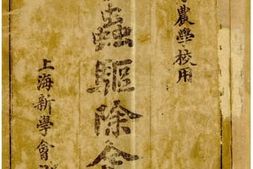 農學校用
蟲驅除全
上海新學會